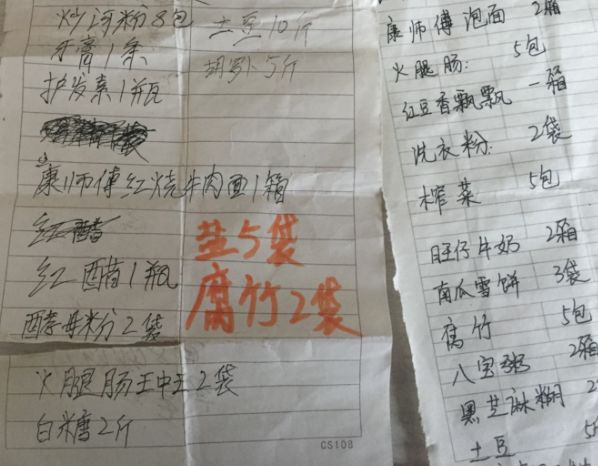 炒河粉8包
牙膏1条
护发素1瓶
康师傅红烧牛肉面1箱
红醋1瓶
酵母粉2袋
火腿肠王中王2袋
白糖2斤
土豆10斤
胡萝卜5斤
盐5袋
腐竹2袋
CS108
康师傅泡面 2箱
火腿肠: 5包
红豆香飘飘 一箱
洗衣粉: 2袋
榨菜 5包
旺仔牛奶 2箱
南瓜雪饼 3袋
腐竹 5包
八宝粥 2箱
黑芝麻糊 2
土豆 5